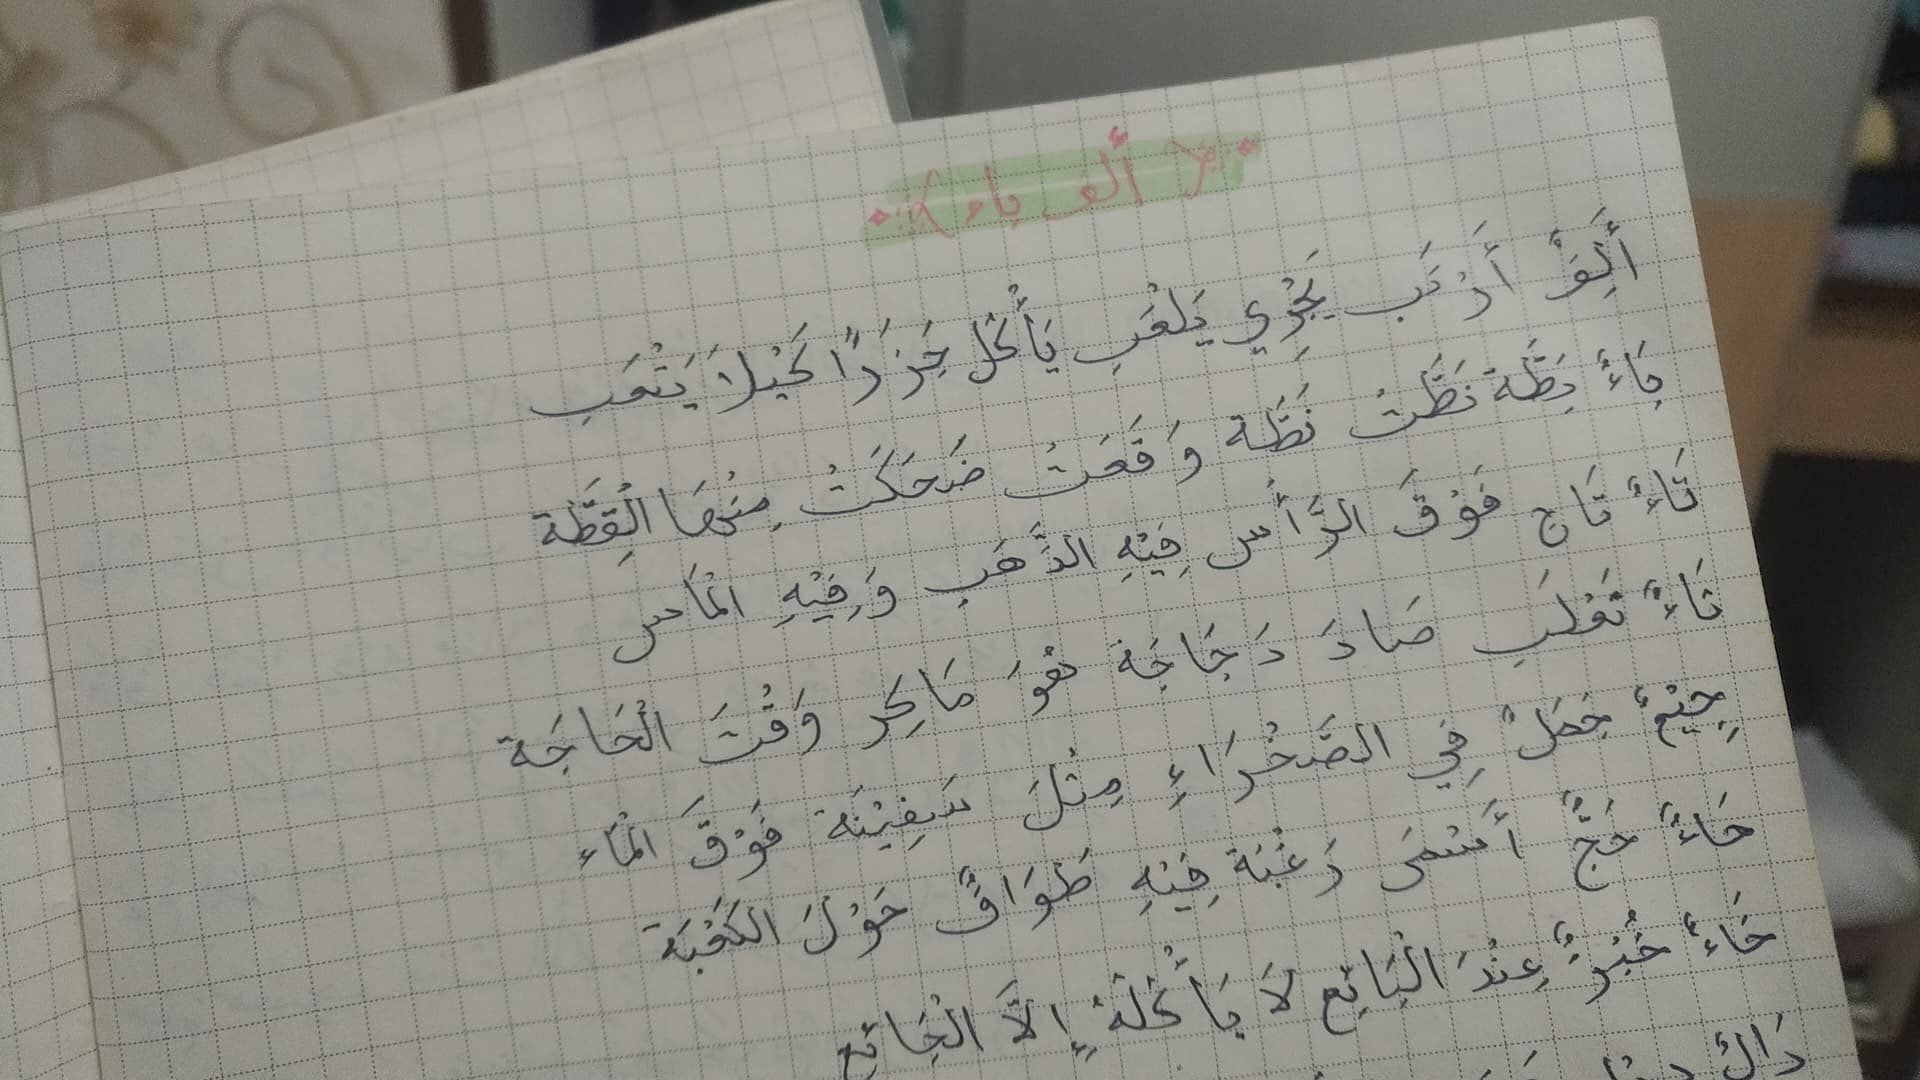 ألف باء
أَلِفٌ أَرْنَب يَجْرِي يَلْعَب يَأْكُل جَزَرًا كَيْلاَ يَتْعَب
بَاءٌ بَطَّة نَطَّتْ نَطَّة وَقَعَتْ ضَحَكَتْ مِنْهَا الْقِطَّة
تَاءٌ تَاج فَوْقَ الرَّأْس فِيْهِ الذَّهَب وَفِيْهِ الْمَاس
ثَاءٌ ثَعْلَب صَادَ دَجَاجَة هْوَ مَاكِر وَقْتَ الْحَاجَة
جِيْمٌ جَمَلٌ فِي الصَّحْرَاءِ مِثْلَ سَفِيْنَة فَوْقَ الْمَاء
حَاءٌ حَجٌّ أَسْمَى رَغْبَة فِيْهِ طَوَافٌ حَوْلَ الكَعْبَة
خَاءٌ خُبْزٌ عِنْدَ الْبَائِع لاَ يَأْكُلَهُ إِلاَّ الْجَائِع
دَالٌ